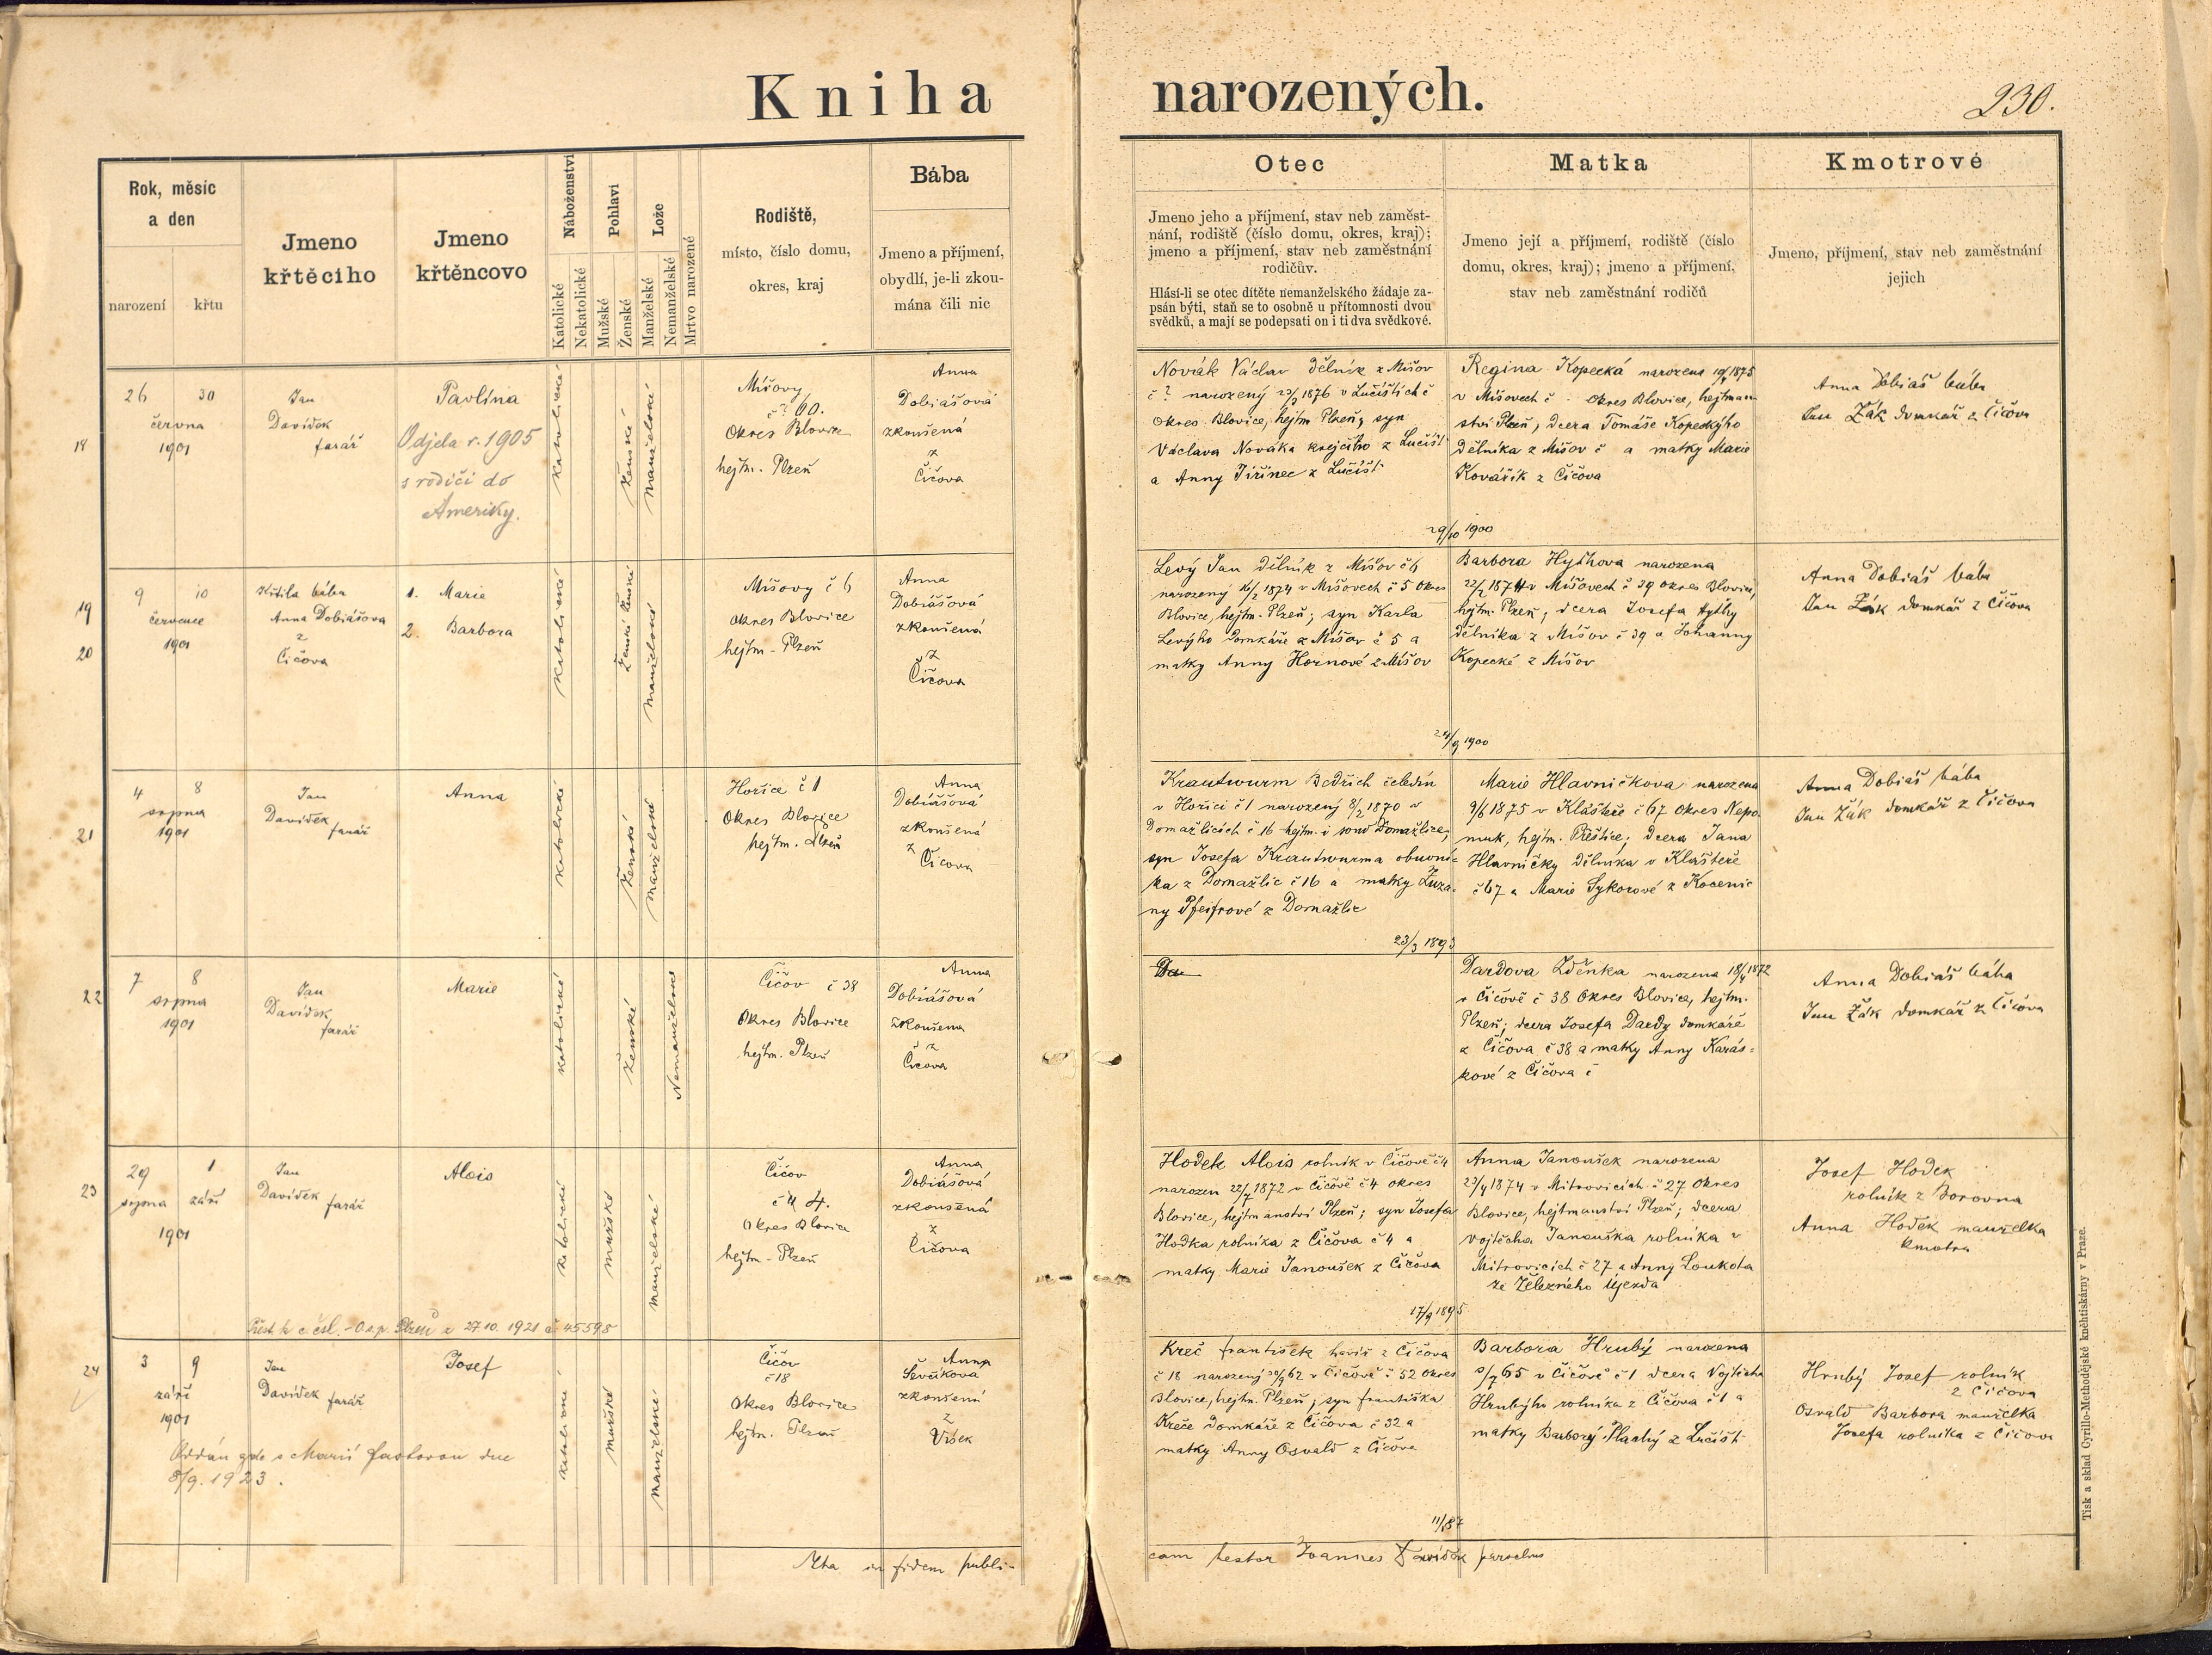 Kniha narozených.
230.
Rok, měsíc
a den
narození
křtu
Jmeno
křtěcího
Jmeno
křtěncovo
Náboženství
Katolické
Nekatolické
Pohlaví
Mužské
Ženské
Lože
Manželské
Nemanželské
Mrtvo narozené
Rodiště,
místo, číslo domu,
okres, kraj
Bába
Jmeno a příjmení,
obydlí, je-li zkou-
mána čili nic
Otec
Jmeno jeho a příjmení, stav neb zaměst-
nání, rodiště (číslo domu, okres, kraj);
jmeno a příjmení, stav neb zaměstnání
rodičův.
Hlásí-li se otec dítěte nemanželského žádaje za-
psán býti, staň se to osobně u přítomnosti dvou
svědků, a mají se podepsati on i ti dva svědkové.
Matka
Jmeno její a příjmení, rodiště (číslo
domu, okres, kraj); jmeno a příjmení,
stav neb zaměstnání rodičů
Kmotrové
Jmeno, příjmení, stav neb zaměstnání
jejich
18
26 30
června
1901
Jan
Davídek
farář
Pavlína
Odjela r. 1905
s rodiči do
Ameriky.
katolické
ženské
manželské
Míšovy
č ? 60.
Okres Blovice
hejtm. Plzeň
Anna
Dobiášová
zkoušená
z
Číčova
Novák Václav dělník z Míšov
č ? narozený 1876 v Lučištích č
Okres Blovice, hejtm Plzeň, syn
Václava Nováka krejčího z Lučišť
a Anny Jiřinec z Lučišť
Regina Kopecká narozena 1875
v Míšovech č okres Blovice, hejtman
ství Plzeň, dcera Tomáše Kopeckýho
dělníka z Míšov č a matky Marie
Kovářík z Číčova
29/10 1900
Anna Dobiáš bába
Jan Žák domkář z Číčova
19
20
9 10
července
1901
Křtila bába
Anna Dobiášova
z
Číčova
1. Marie
2. Barbora
katolické
ženské ženské
manželské
Míšovy č 6
okres Blovice
hejtm - Plzeň
Anna
Dobiášová
zkoušená
z
Číčova
Levý Jan dělník z Míšov č 6
narozený 16/2 1874 v Míšovech č 5 Okres
Blovice, hejtm. Plzeň; syn Karla
Levýho domkáře z Míšov č 5 a
matky Anny Hornové z Míšov
Barbora Hythova narozena
22/2 1874 v Míšovech č 39 okres Blovice,
hejtm. Plzeň; dcera Josefa Hythy
dělníka z Míšov č 39 a Johanny
Kopecké z Míšov
24/9 1900
Anna Dobiáš bába
Jan Žák domkář z Číčova
21
4 8
srpna
1901
Jan
Davídek
farář
Anna
katolické
ženské
manželské
Hořice č 1
Okres Blovice
hejtm. Plzeň
Anna
Dobiášová
zkoušená
z Číčova
Krautwurm Bedřich čeledín
v Hořici č 1 narozený 8/2 1870 v
Domažlicích č 16 hejtm. i soud Domažlice,
syn Josefa Krautwurma obuvní-
ka z Domažlic č 16 a matky Zuza-
ny Pfeifrové z Domažlic
Marie Hlavničkova narozena
9/6 1875 v Klášteře č 67 Okres Nepo-
muk, hejtm. Přeštice; dcera Jana
Hlavničky dělníka v Klášteře
č 67 a Marie Sykorové z Kocenic
23/3 1893
Anna Dobiáš bába
Jan Žák domkář z Číčova
22
7 8
srpna
1901
Jan
Davídek
farář
Marie
katolické
ženské
Nemanželské
Číčov č 38
Okres Blovice
hejtm. Plzeň
Anna
Dobiášová
zkoušena
z
Číčova
Dardova Zděnka narozena 18/4 1872
v Číčově č 38 Okres Blovice, hejtm.
Plzeň; dcera Josefa Dardy domkáře
z Číčova č 38 a matky Anny Karás-
kové z Číčova č
Anna Dobiáš bába
Jan Žák domkář z Číčova
23
29 1
srpna září
1901
Jan
Davídek
farář
Alois
katolické
mužské
manželské
Číčov
č 4 4.
Okres Blovice
hejtm - Plzeň
Anna
Dobiášová
zkoušená
z
Číčova
Hodek Alois rolník v Číčově č 4
narozen 22/7 1872 v Číčově č 4 okres
Blovice, hejtmanství Plzeň; syn Josefa
Hodka rolníka z Číčova č 4 a
matky Marie Janoušek z Číčova
Anna Janoušek narozena
23/4 1874 v Mitrovicích č 27 Okres
Blovice, hejtmanství Plzeň; dcera
Vojtěcha Janouška rolníka v
Mitrovicích č 27 a Anny Loukota
ze Železného Újezda
17/9 1895
Josef Hodek
rolník z Borovna
Anna Hodek manželka
kmotra
Přest. k c. čsl. - O.s.p. Plzeň z 27 10. 1921 č. 45598
24
3 9
září
1901
Jan
Davídek
farář
Josef
Oddán zde s Marií dne
8/9. 1923.
katolické
mužské
manželské
Číčov
č 18
Okres Blovice
hejtm. Plzeň
Anna
Ševčíkova
zkoušená
z
Vísek
Kreč František havíř z Číčova
č 18 narozený 62 v Číčově č 52 Okres
Blovice, hejtm. Plzeň; syn Františka
Kreče domkáře z Číčova č 32 a
matky Anny Osvald z Číčova
Barbora Hrubý narozena
65 v Číčově č 1 dcera Vojtěcha
Hrubýho rolníka z Číčova č 1 a
matky Barbory Šlachý z Lučišť
87
Hrubý Josef rolník
z Číčova
Osvald Barbora manželka
Josefa rolníka z Číčova
Ita in fidem publi-
cam testor Joannes Davídek parochus
Tisk a sklad Cyrillo-Methodějské knihtiskárny v Praze.